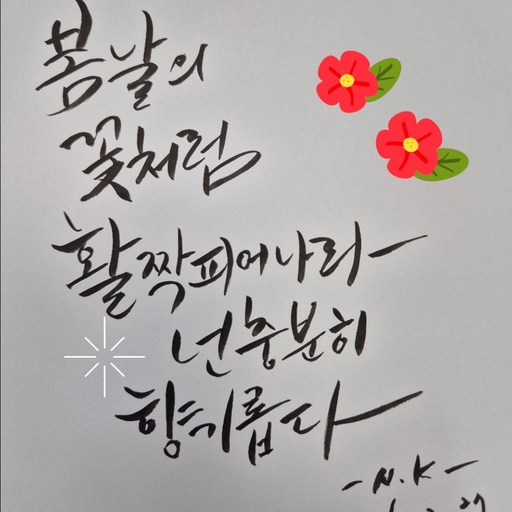 봄날의
꽃처럼
활짝피어나리
넌충분히
향긔롭다
-N.K-